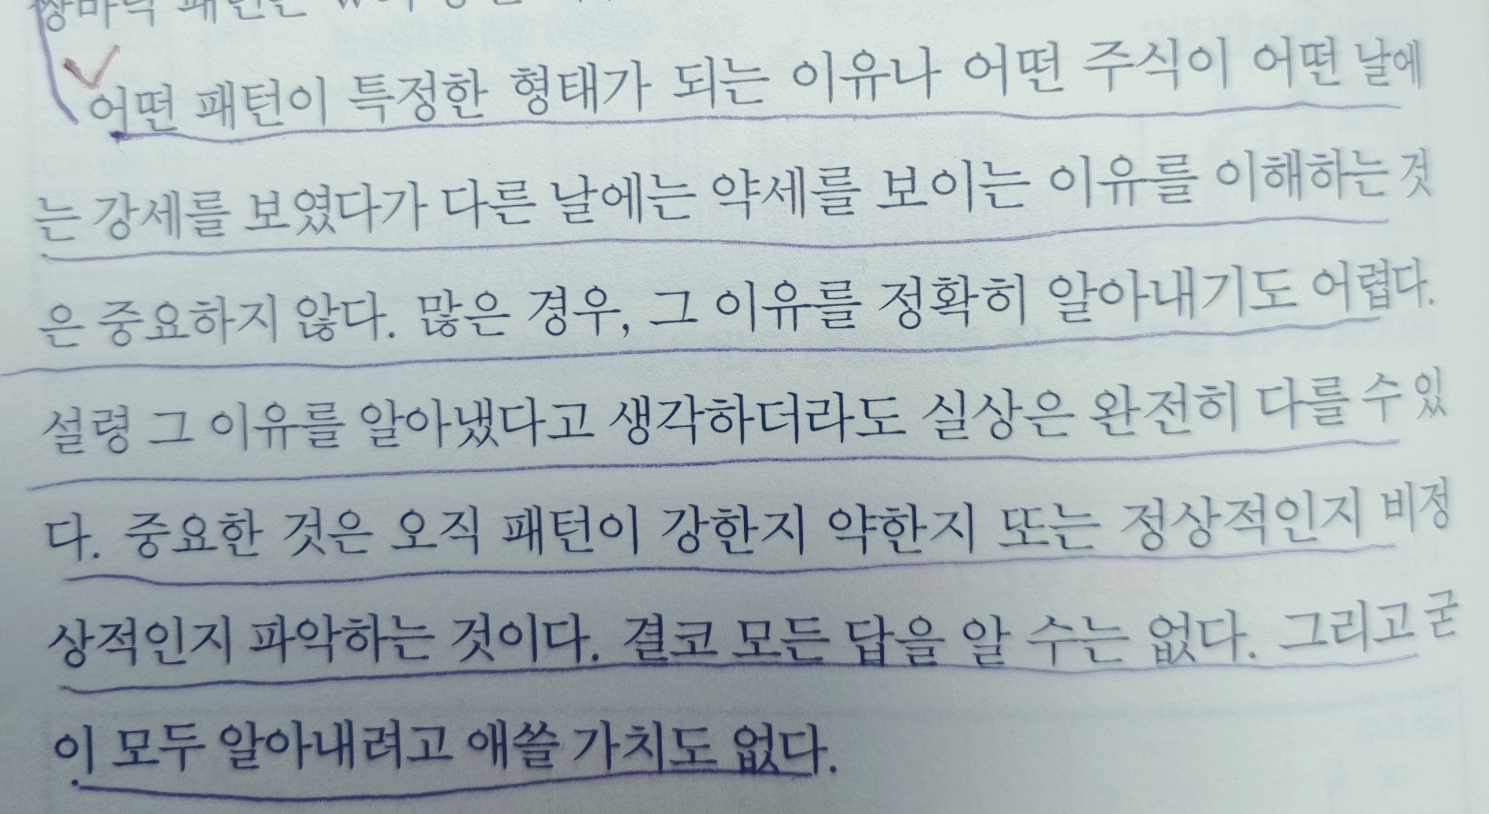 쌍바닥 패턴은
어떤 패턴이 특정한 형태가 되는 이유나 어떤 주식이 어떤 날에
는 강세를 보였다가 다른 날에는 약세를 보이는 이유를 이해하는 것
은 중요하지 않다. 많은 경우, 그 이유를 정확히 알아내기도 어렵다.
설령 그 이유를 알아냈다고 생각하더라도 실상은 완전히 다를 수 있
다. 중요한 것은 오직 패턴이 강한지 약한지 또는 정상적인지 비정
상적인지 파악하는 것이다. 결코 모든 답을 알 수는 없다. 그리고 굳
이 모두 알아내려고 애쓸 가치도 없다.